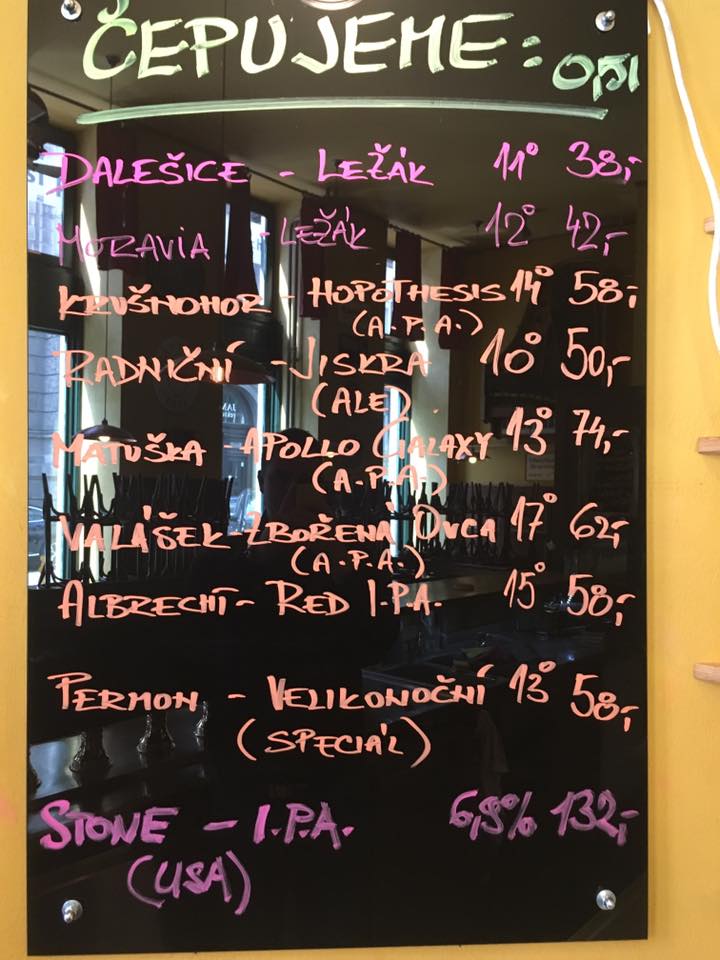 ČEPUJEME: 0,5l
DALEŠICE - LEŽÁK 11° 38,-
MORAVIA - LEŽÁK 12° 42,-
KRUŠNOHOR - HOPOTHESIS 14° 58,-
(A.P.A.)
RADNIČNÍ - JISKRA 10° 50,-
(ALE)
MATUŠKA - APOLLO GALAXY 13° 74,-
(A.P.A.)
VALÁŠEK - ZBOŘENÁ OVCA 17° 62,-
(A.P.A.)
ALBRECHT - RED I.P.A. 15° 58,-
PERMON - VELIKONOČNÍ 13° 58,-
(SPECIÁL)
STONE - I.P.A. 6,9% 132,-
(USA)